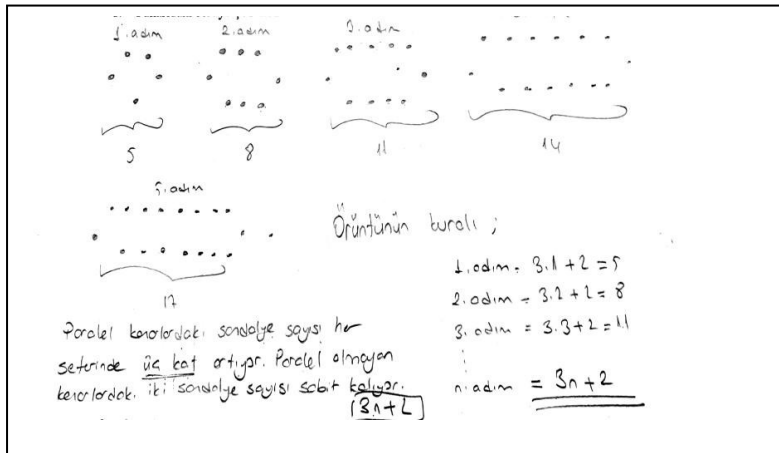 1. adım 2. adım 3. adım
5 8 11 14
5. adım
17
Örüntünün kuralı ;
1. adım = 3.1 + 2 = 5
2. adım = 3.2 + 2 = 8
3. adım = 3.3 + 2 = 11
⋮
n. adım = 3n + 2
Paralel kenarlardaki sandalye sayısı her
seferinde üç kat artıyor. Paralel olmayan
kenarlardaki iki sandalye sayısı sabit kalıyor.
3n + 2